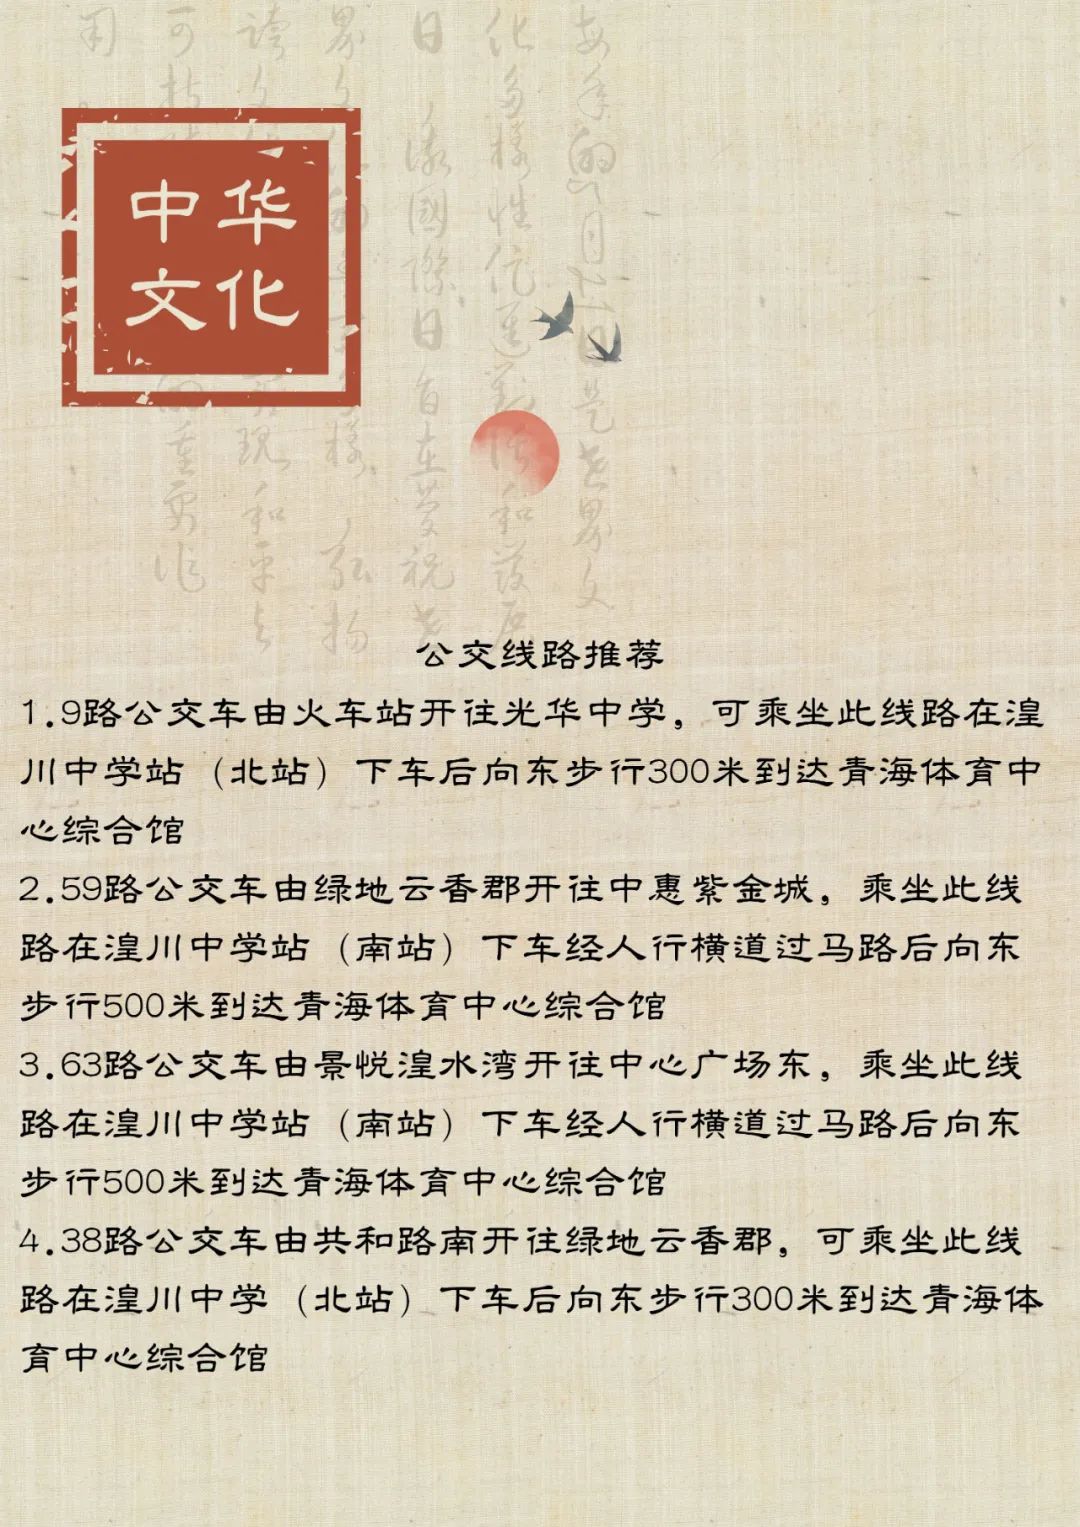 中华
文化
公交线路推荐
1.9路公交车由火车站开往光华中学，可乘坐此线路在湟
川中学站（北站）下车后向东步行300米到达青海体育中
心综合馆
2.59路公交车由绿地云香郡开往中惠紫金城，乘坐此线
路在湟川中学站（南站）下车经人行横道过马路后向东
步行500米到达青海体育中心综合馆
3.63路公交车由景悦湟水湾开往中心广场东，乘坐此线
路在湟川中学站（南站）下车经人行横道过马路后向东
步行500米到达青海体育中心综合馆
4.38路公交车由共和路南开往绿地云香郡，可乘坐此线
路在湟川中学（北站）下车后向东步行300米到达青海体
育中心综合馆